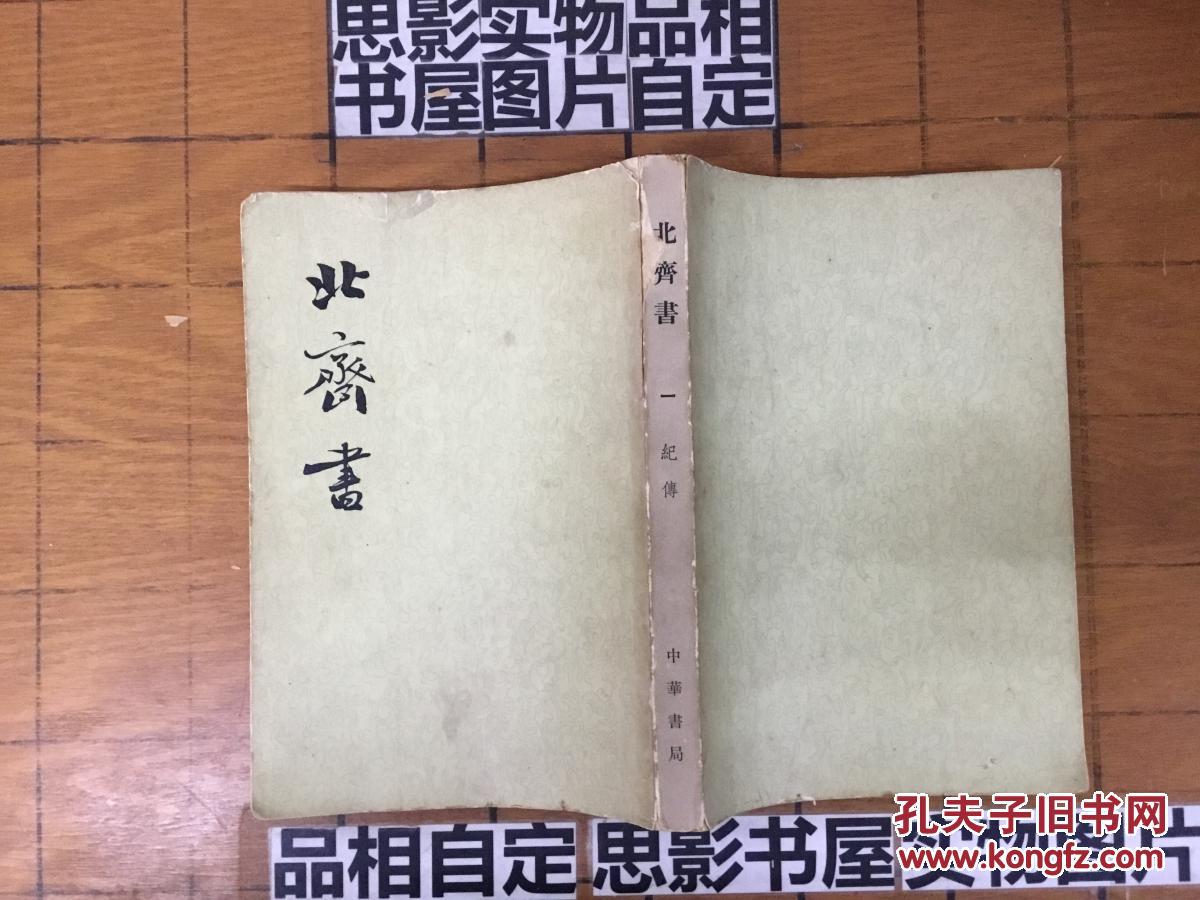 思影实物品相
书屋图片自定
北齊書
北齊書 一 紀傳 中華書局
品相自定 思影书屋 实物图片
孔夫子旧书网
www.kongfz.com